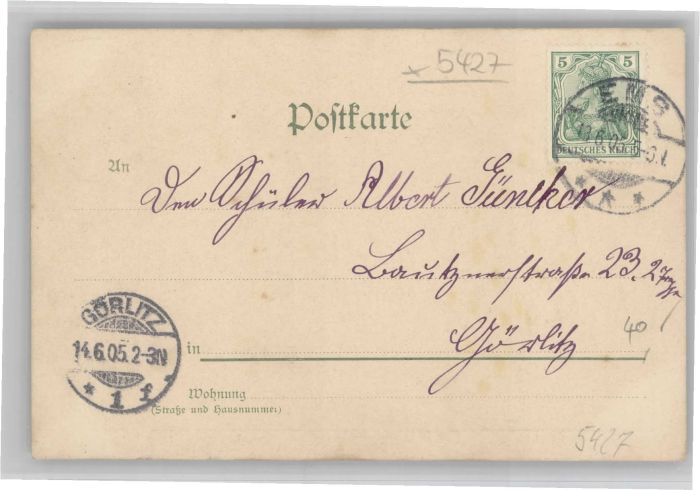 * 5427
5 5
DEUTSCHES REICH
EMS
Postkarte
An
Den Schüler Albert Günther
Bautznerstraße 23. 2
Görlitz
40
GÖRLITZ
14.6.05. 2-3N
* 1 f *
in
Wohnung
(Straße und Hausnummer)
5427